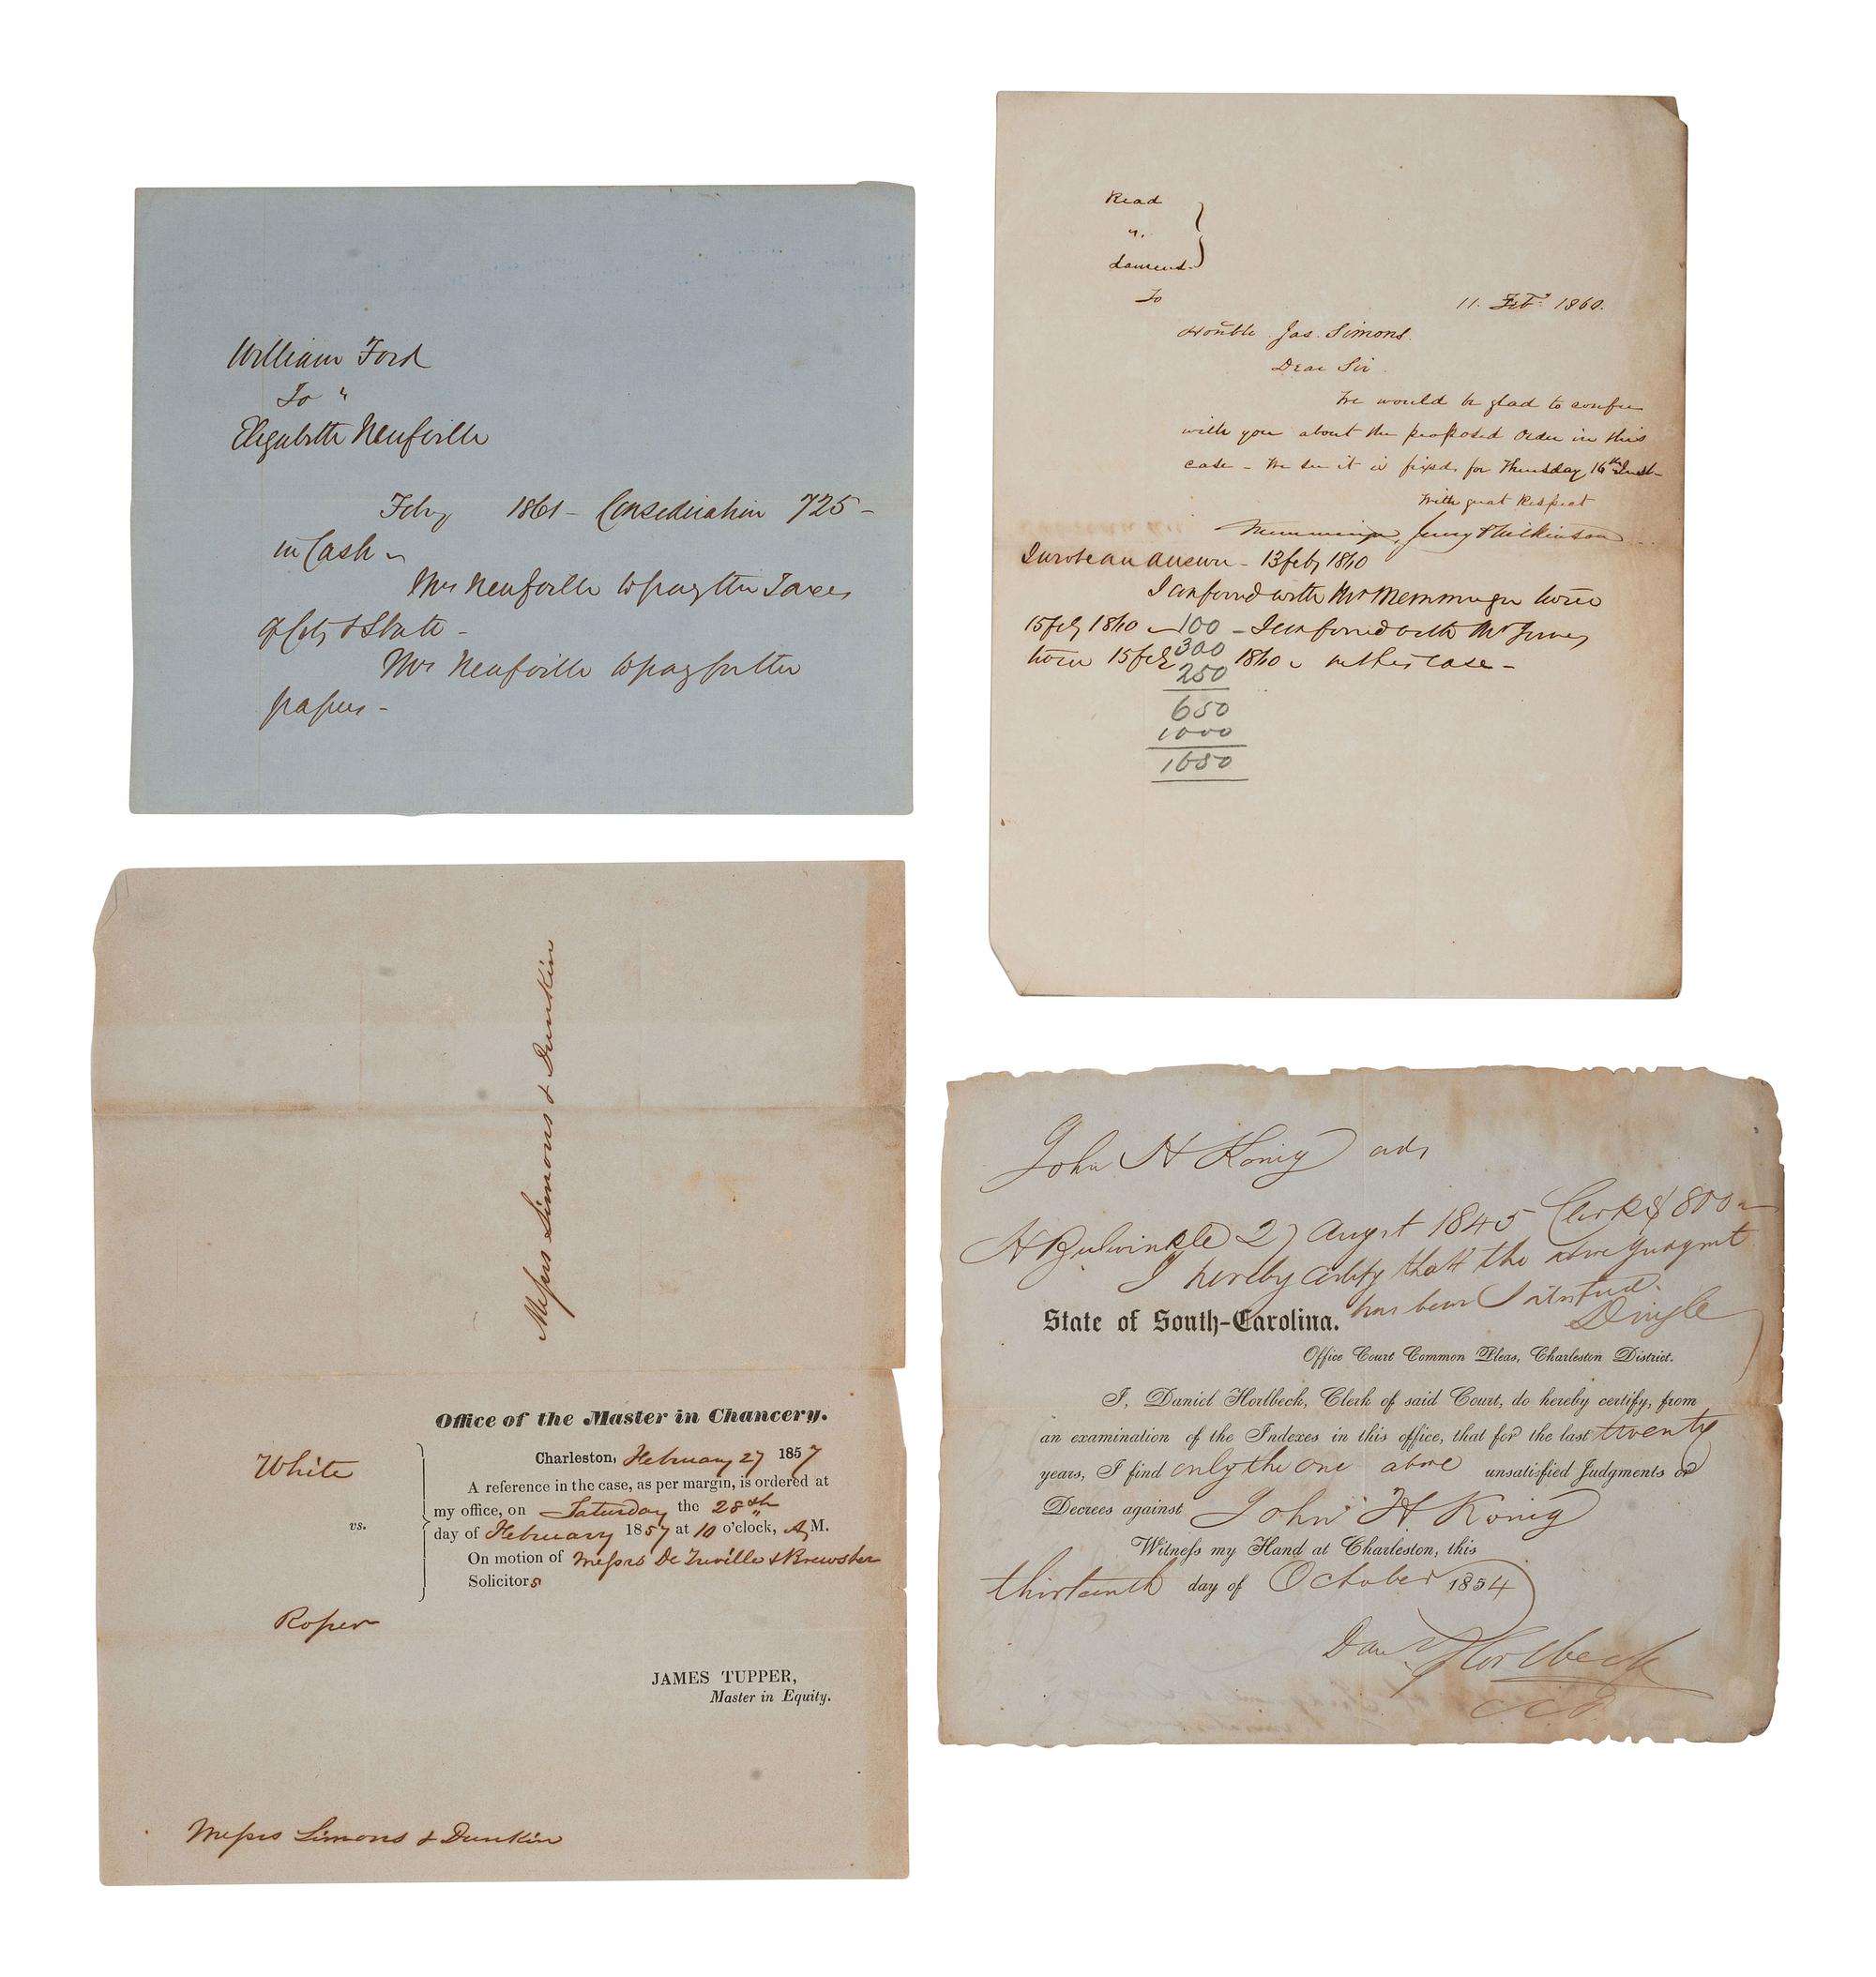 William Ford
To "
Elizabeth Neufville
Feby 1861 - Consideration 725 -
in Cash -
Mrs Neufville to pay the Taxes
of City & State -
Mrs Neufville to pay for the
papers -
Read
v.
To
11. Feby 1860.
Honble Jas. Simons.
Dear Sir
We would be glad to confer
with you about the proposed order in this
case - We see it is fixed for Thursday, 16th Inst -
With great Respect
Memminger, Jervey & Wilkinson
I wrote an answer - 13 feby 1860
I conferred with Mr Memminger
15 feby 1860 - I conferred with Mr Jervey
15 feby 1860 - in this case -
100
300
250
650
1000
1650
Messrs Simons & Dunkin
Office of the Master in Chancery.
White
vs.
Roper
Charleston, February 27 1857
A reference in the case, as per margin, is ordered at
my office, on Saturday the 28th
day of February 1857 at 10 o'clock, A.M.
On motion of Messrs De Treville & Brewster
Solicitors
JAMES TUPPER,
Master in Equity.
Messrs Simons & Dunkin
John H Konig ads
H Bulwinkle 27 Augst 1845 Clerk $800
I hereby certify that the above Judgmt
has been Satisfied.
Dingle
State of South-Carolina.
Office Court Common Pleas, Charleston District.
I, Daniel Horlbeck, Clerk of said Court, do hereby certify, from
an examination of the Indexes in this office, that for the last twenty
years, I find only the one above unsatisfied Judgments or
Decrees against John H Konig
Witness my Hand at Charleston, this
thirteenth day of October 1854
Danl Horlbeck